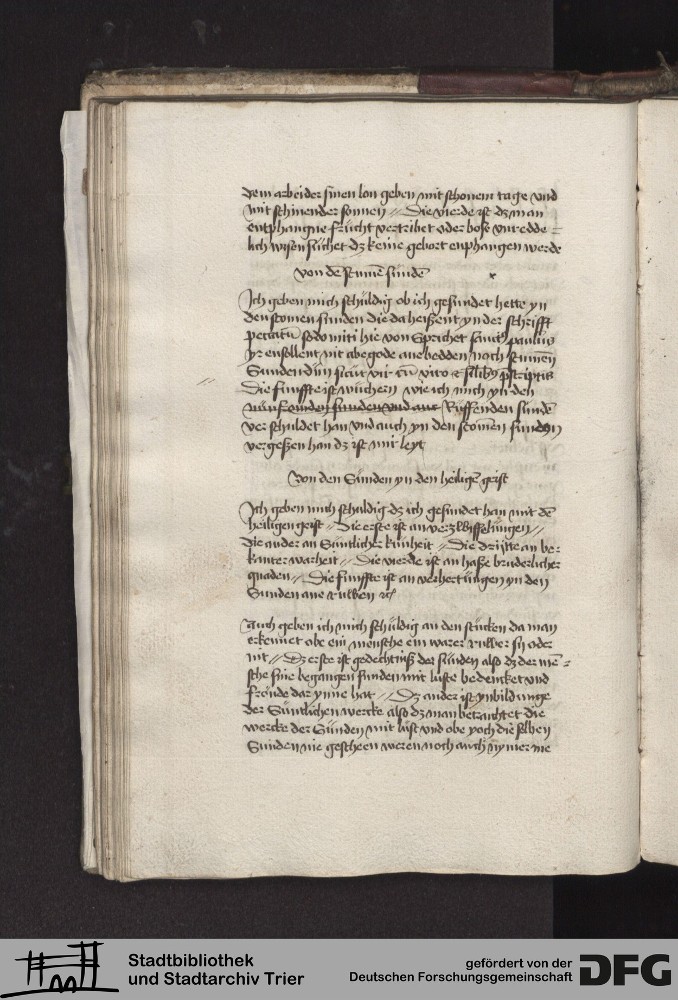 dem arbeider sinen lon geben mit schonem tage vnd
mit schinender sonnen // Die vierde ist dz man
entphangne frücht vertribet oder bose vnredde=
lich wysen sůchet dz keine gebort enphangen werde
von dē stumē sündē
Ich geben mich schüldig ob ich gesundet hette yn
den stomen sunden die da heißent yn der schrifft
peccatū sodomiti hie von sprichet sanct paulus
yr ensollent nit abegode ane bedden noch stumen
Sunden
Die funffte ist wüchern wie ich mich yn den
sunden vnd Ruffenden sündē
verschuldet han vnd auch yn den stomen sunden
vergeßen han dz ist mir leyt
von den Sunden yn den heiligē geist
Ich geben mich schuldig dz ich gesundet han mit dē
heiligen geist // Die erste ist an verzwiffelungen //
die ander an Süntlicher künheit // Die dritte an be=
kanter warheit // Die vierde ist an haße bruderlicher
gnaden // Die funffte ist an verhertungen yn den
Sunden ane ruwen
Auch geben ich mich schüldig an den stücken da man
erkennet obe ein mensche ein warer ruwer sy oder
nit // Dz erste ist gedechtniß der sünden also dz der mē=
sche sine begangen sunden mit luste bedencket vnd
freude dar ynne hat // Dz ander ist ynbildunge
der Süntlichen wercke also dz man betrachtet die
wercke der Sünden mit lust vnd obe yoch die selben
Sunden nie gescheen weren noch auch nymer me
Stadtbibliothek
und Stadtarchiv Trier
gefördert von der
Deutschen Forschungsgemeinschaft
DFG